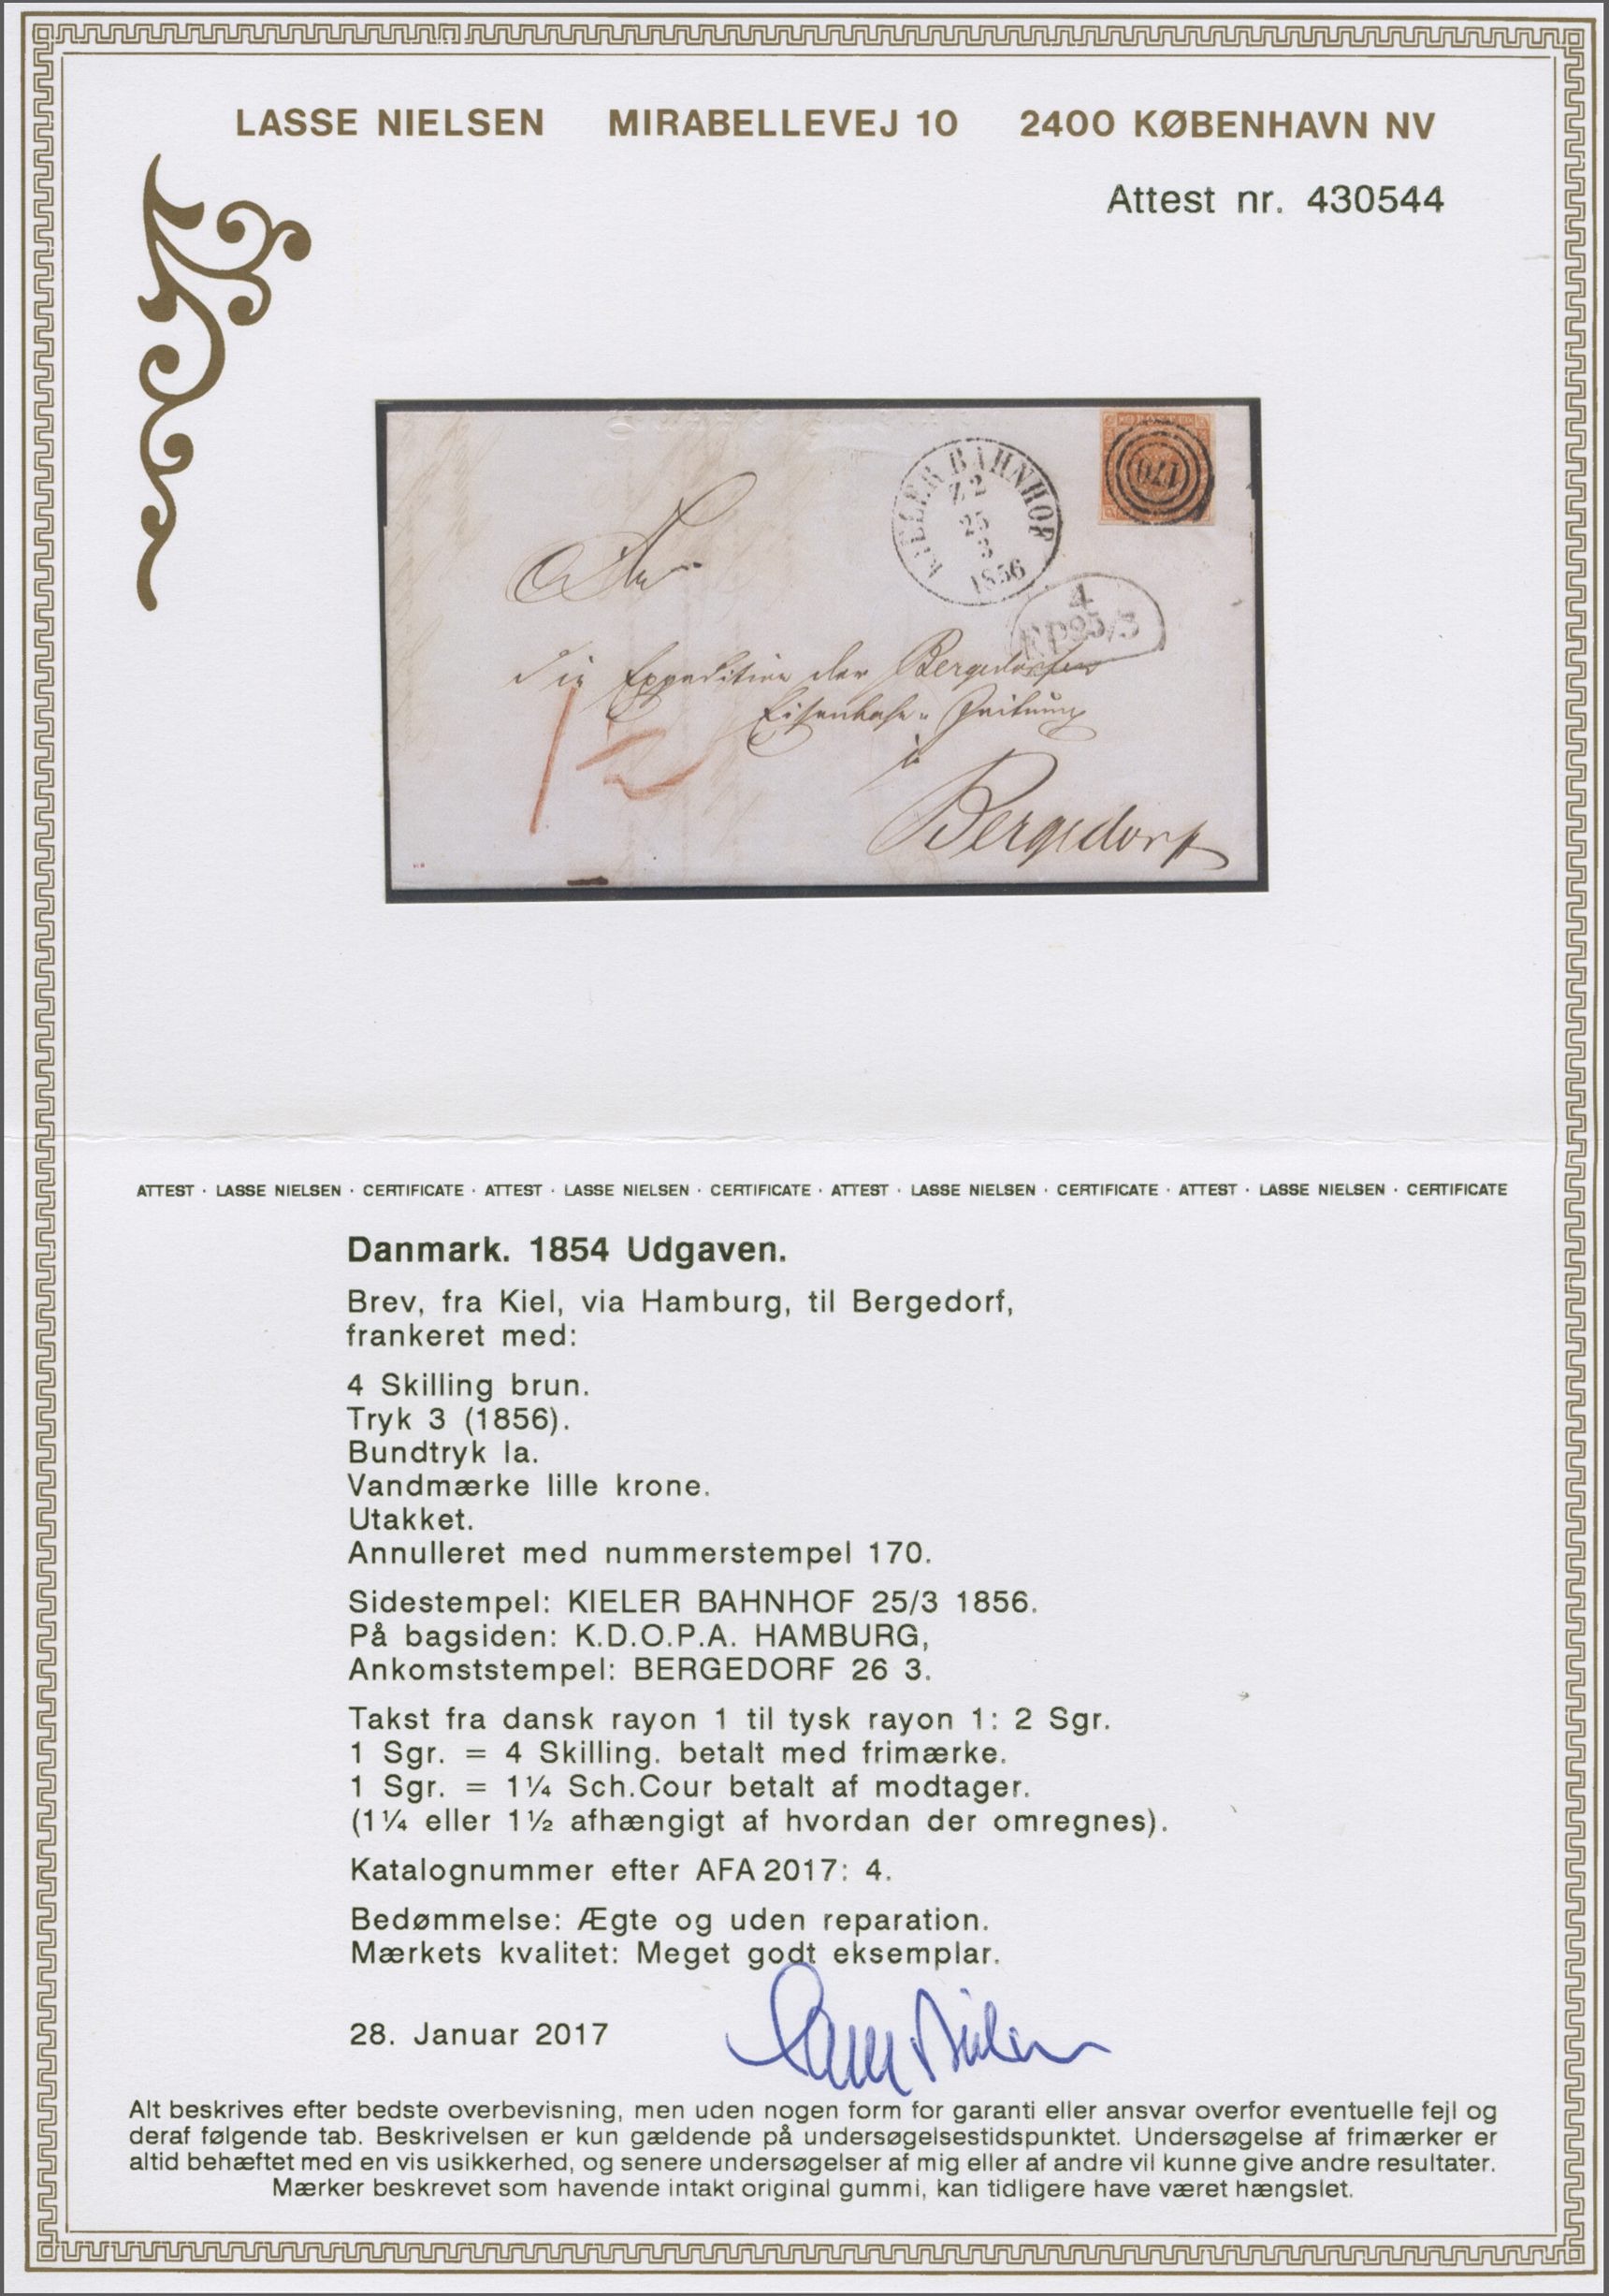 LASSE NIELSEN MIRABELLEVEJ 10 2400 KØBENHAVN NV
Attest nr. 430544
KIELER BAHNHOF
Z 2
25
3
1856
170
4
EP 25/3
die Expedition der Bergedorfer
Eisenbahn-Zeitung
in
Bergedorf
ATTEST · LASSE NIELSEN · CERTIFICATE · ATTEST · LASSE NIELSEN · CERTIFICATE · ATTEST · LASSE NIELSEN · CERTIFICATE · ATTEST · LASSE NIELSEN · CERTIFICATE
Danmark. 1854 Udgaven.
Brev, fra Kiel, via Hamburg, til Bergedorf,
frankeret med:
4 Skilling brun.
Tryk 3 (1856).
Bundtryk Ia.
Vandmærke lille krone.
Utakket.
Annulleret med nummerstempel 170.
Sidestempel: KIELER BAHNHOF 25/3 1856.
På bagsiden: K.D.O.P.A. HAMBURG,
Ankomststempel: BERGEDORF 26 3.
Takst fra dansk rayon 1 til tysk rayon 1: 2 Sgr.
1 Sgr. = 4 Skilling. betalt med frimærke.
1 Sgr. = 1¼ Sch.Cour betalt af modtager.
(1¼ eller 1½ afhængigt af hvordan der omregnes).
Katalognummer efter AFA 2017: 4.
Bedømmelse: Ægte og uden reparation.
Mærkets kvalitet: Meget godt eksemplar.
28. Januar 2017
Lasse Nielsen
Alt beskrives efter bedste overbevisning, men uden nogen form for garanti eller ansvar overfor eventuelle fejl og
deraf følgende tab. Beskrivelsen er kun gældende på undersøgelsestidspunktet. Undersøgelse af frimærker er
altid behæftet med en vis usikkerhed, og senere undersøgelser af mig eller af andre vil kunne give andre resultater.
Mærker beskrevet som havende intakt original gummi, kan tidligere have været hængslet.